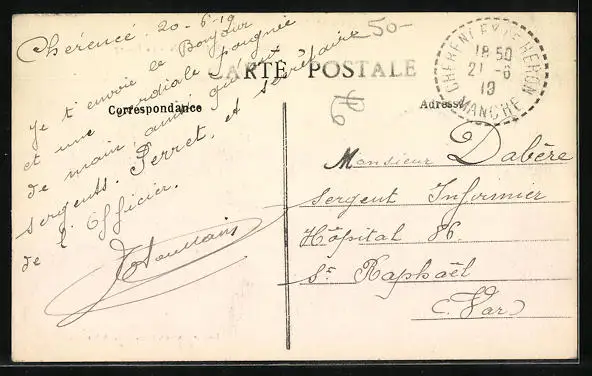 Chérencé. 20-6-19
50-
CARTE POSTALE
CHERENCEY LE HERON
18 50
21-6
19
MANCHE
Correspondance
Adresse
Je t'envoie le Bonjour
et une cordiale poignée
de main, ainsi qu'aux
sergents. Perret, et secrétaire
de l'Officier.
Monsieur Dabère
Sergent Infirmier
Hôpital 86
St Raphaël
(Var)